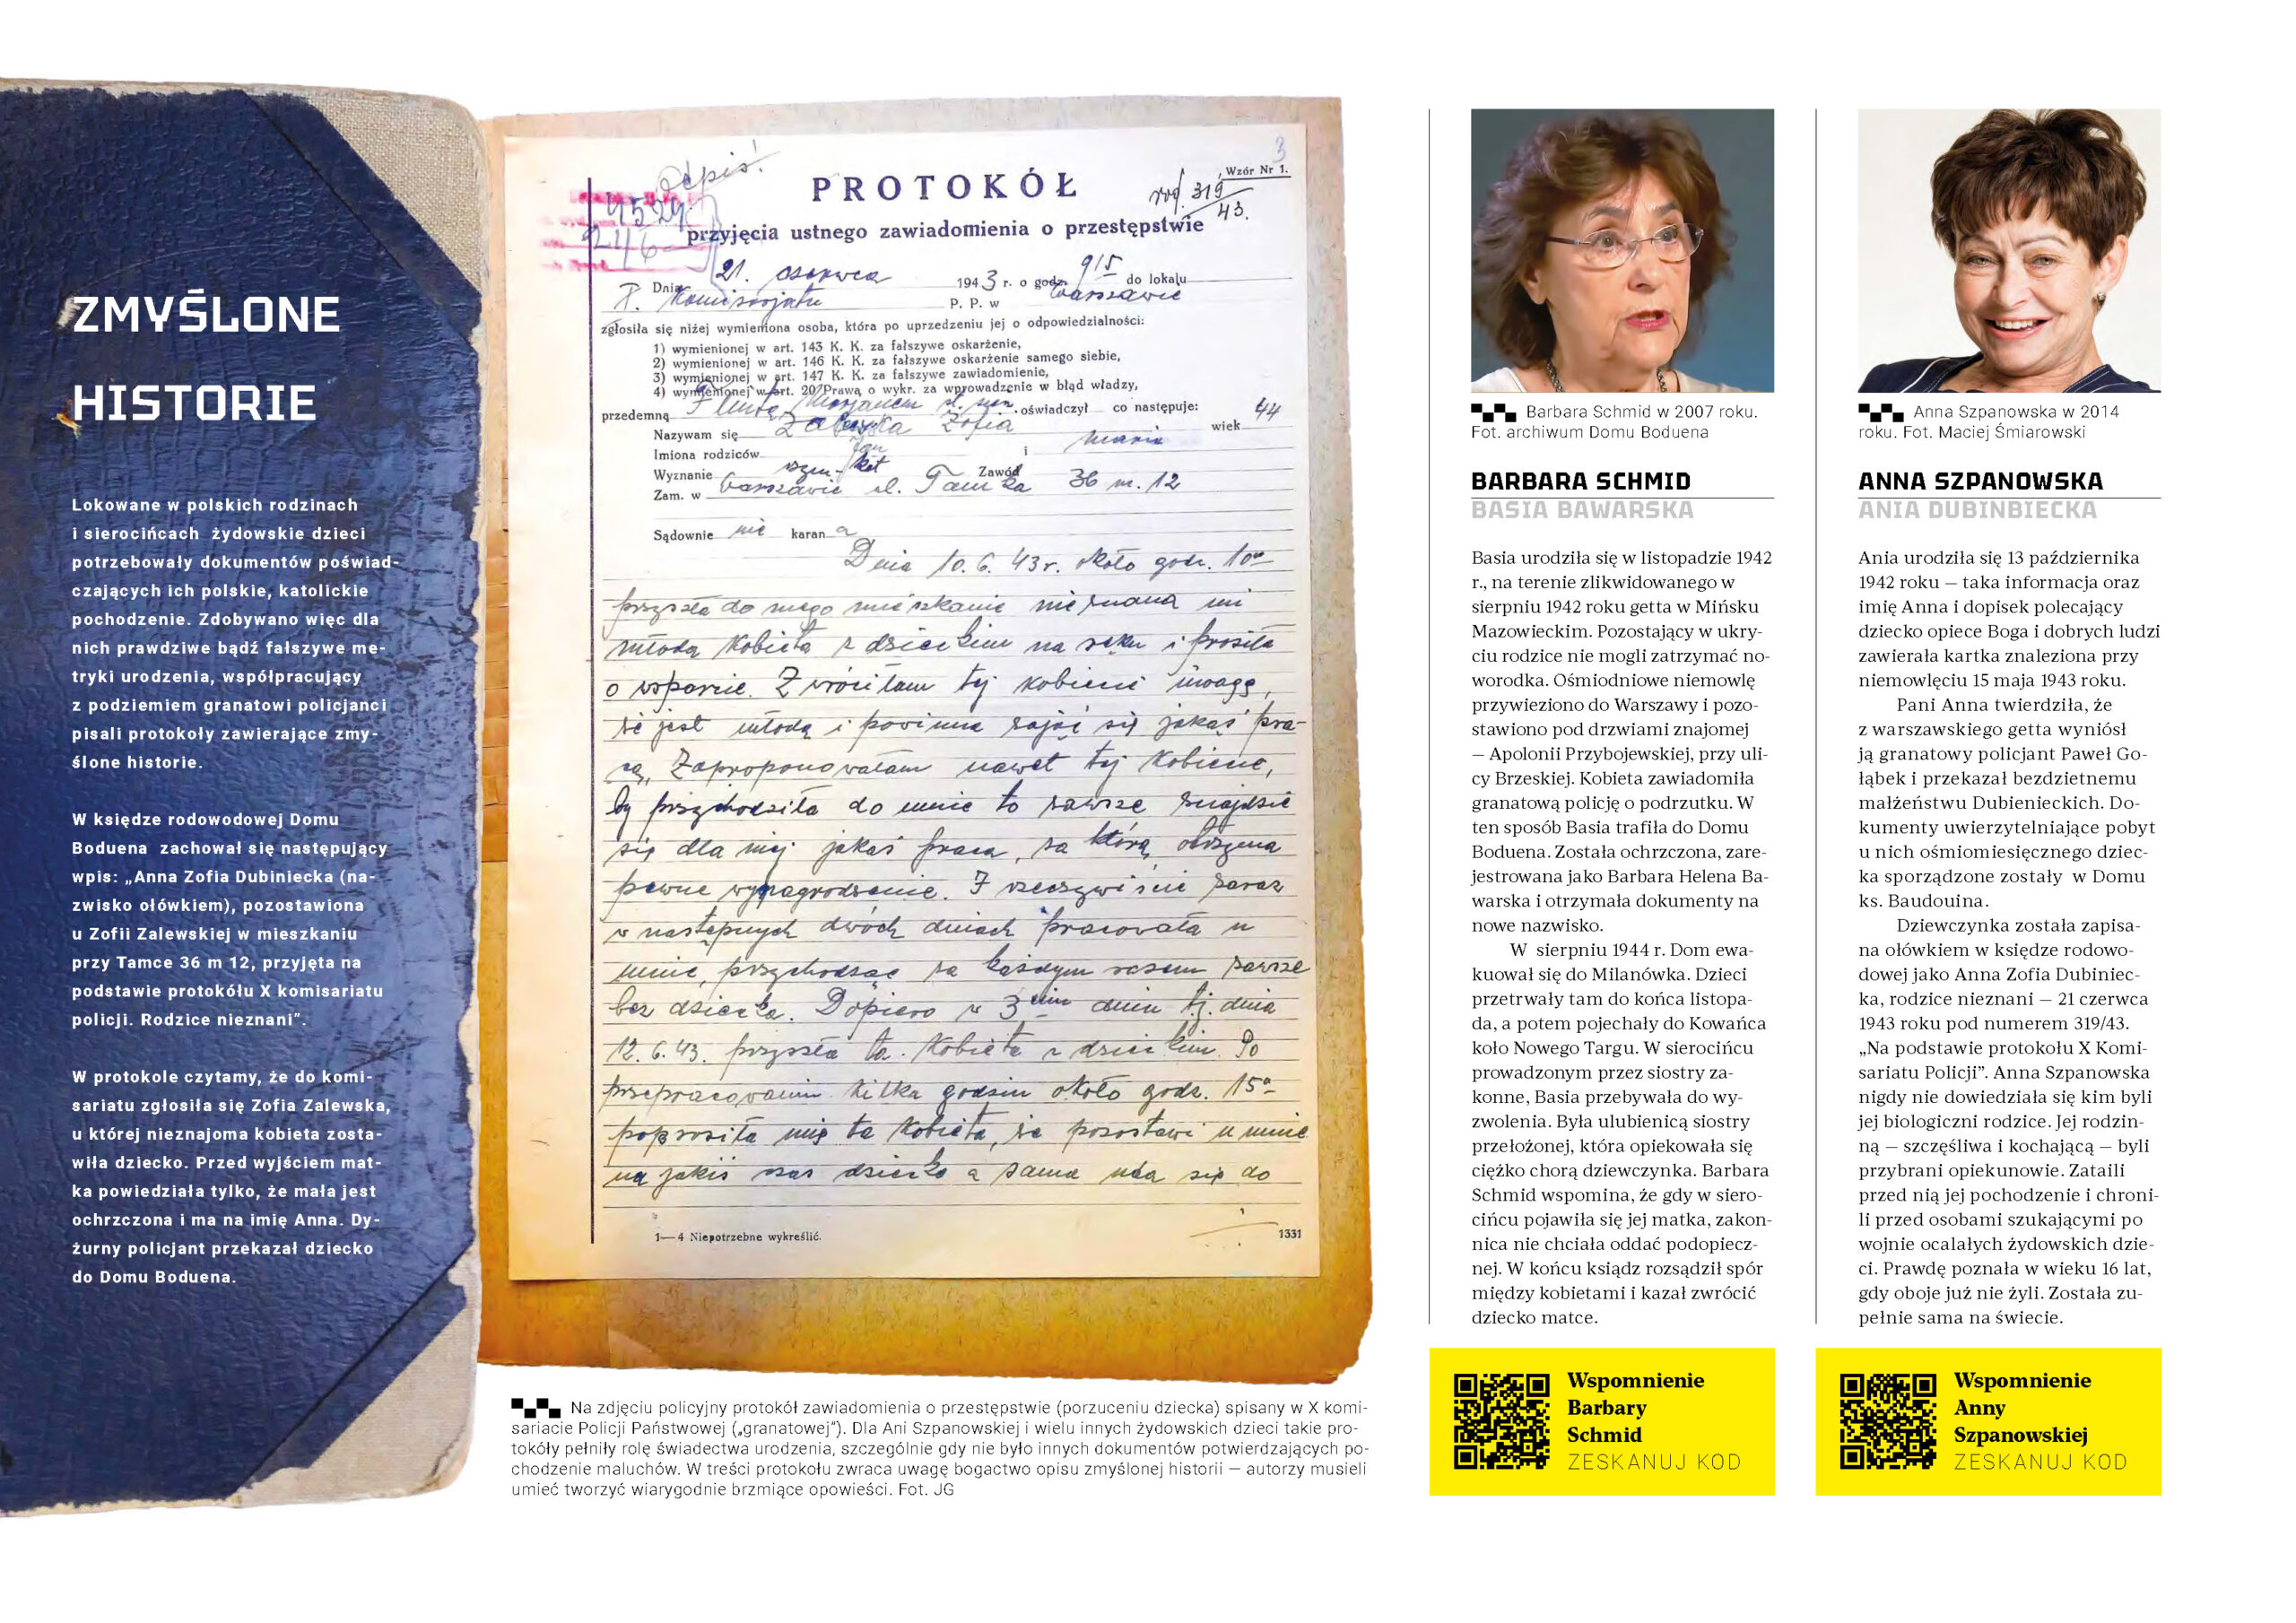 ZMYŚLONE
HISTORIE
Lokowane w polskich rodzinach
i sierocińcach żydowskie dzieci
potrzebowały dokumentów poświad-
czających ich polskie, katolickie
pochodzenie. Zdobywano więc dla
nich prawdziwe bądź fałszywe me-
tryki urodzenia, współpracujący
z podziemiem granatowi policjanci
pisali protokoły zawierające zmy-
ślone historie.
W księdze rodowodowej Domu
Boduena zachował się następujący
wpis: „Anna Zofia Dubiniecka (na-
zwisko ołówkiem), pozostawiona
u Zofii Zalewskiej w mieszkaniu
przy Tamce 36 m 12, przyjęta na
podstawie protokółu X komisariatu
policji. Rodzice nieznani”.
W protokole czytamy, że do komi-
sariatu zgłosiła się Zofia Zalewska,
u której nieznajoma kobieta zosta-
wiła dziecko. Przed wyjściem mat-
ka powiedziała tylko, że mała jest
ochrzczona i ma na imię Anna. Dy-
żurny policjant przekazał dziecko
do Domu Boduena.
3
Odpis!
Wzór Nr 1.
PROTOKÓŁ
rod. 319/43.
przyjęcia ustnego zawiadomienia o przestępstwie
Dnia 21. czerwca 1943 r. o godz. 915 do lokalu
Komisarjatu P. P. w Warszawie
zgłosiła się niżej wymieniona osoba, która po uprzedzeniu jej o odpowiedzialności:
1) wymienionej w art. 143 K. K. za fałszywe oskarżenie,
2) wymienionej w art. 146 K. K. za fałszywe oskarżenie samego siebie,
3) wymienionej w art. 147 K. K. za fałszywe zawiadomienie,
4) wymienionej w art. 20 Prawa o wykr. za wprowadzenie w błąd władzy,
przedemną oświadczył co następuje:
Nazywam się Zalewska Zofia wiek 44
Imiona rodziców Jan i Maria
Wyznanie rzym-kat Zawód
Zam. w Warszawie ul. Tamka 36 m. 12
Sądownie nie karana
Dnia 10.6.43r. około godz. 10
przyszła do mego mieszkania nieznana mi
młoda kobieta z dzieckiem na ręku i prosiła
o wsparcie. Zwróciłam tej kobiecie uwagę,
że jest młodą i powinna zająć się jakąś pra-
cą, Zaproponowałam nawet tej kobiecie,
by przychodziła do mnie to zawsze znajdzie
się dla niej jakaś praca, za którą otrzyma
pewne wynagrodzenie. I rzeczywiście zaraz
w następnych dwóch dniach pracowała u
mnie, przychodząc za każdym razem zawsze
bez dziecka. Dopiero w 3cim dniu tj. dnia
12.6.43. przyszła ta kobieta z dzieckiem. Po
przepracowaniu kilka godzin około godz. 15
poprosiła mię ta kobieta, że pozostawi u mnie
na jakiś czas dziecko a sama uda się do
1—4 Niepotrzebne wykreślić.
1331
Na zdjęciu policyjny protokół zawiadomienia o przestępstwie (porzuceniu dziecka) spisany w X komi-
sariacie Policji Państwowej („granatowej”). Dla Ani Szpanowskiej i wielu innych żydowskich dzieci takie pro-
tokóły pełniły rolę świadectwa urodzenia, szczególnie gdy nie było innych dokumentów potwierdzających po-
chodzenie maluchów. W treści protokołu zwraca uwagę bogactwo opisu zmyślonej historii – autorzy musieli
umieć tworzyć wiarygodnie brzmiące opowieści. Fot. JG
Barbara Schmid w 2007 roku.
Fot. archiwum Domu Boduena
BARBARA SCHMID
BASIA BAWARSKA
Basia urodziła się w listopadzie 1942
r., na terenie zlikwidowanego w
sierpniu 1942 roku getta w Mińsku
Mazowieckim. Pozostający w ukry-
ciu rodzice nie mogli zatrzymać no-
worodka. Ośmiodniowe niemowlę
przywieziono do Warszawy i pozo-
stawiono pod drzwiami znajomej
– Apolonii Przybojewskiej, przy uli-
cy Brzeskiej. Kobieta zawiadomiła
granatową policję o podrzutku. W
ten sposób Basia trafiła do Domu
Boduena. Została ochrzczona, zare-
jestrowana jako Barbara Helena Ba-
warska i otrzymała dokumenty na
nowe nazwisko.
W sierpniu 1944 r. Dom ewa-
kuował się do Milanówka. Dzieci
przetrwały tam do końca listopa-
da, a potem pojechały do Kowańca
koło Nowego Targu. W sierocińcu
prowadzonym przez siostry za-
konne, Basia przebywała do wy-
zwolenia. Była ulubienicą siostry
przełożonej, która opiekowała się
ciężko chorą dziewczynka. Barbara
Schmid wspomina, że gdy w siero-
cińcu pojawiła się jej matka, zakon-
nica nie chciała oddać podopiecz-
nej. W końcu ksiądz rozsądził spór
między kobietami i kazał zwrócić
dziecko matce.
Wspomnienie
Barbary
Schmid
ZESKANUJ KOD
Anna Szpanowska w 2014
roku. Fot. Maciej Śmiarowski
ANNA SZPANOWSKA
ANIA DUBINBIECKA
Ania urodziła się 13 października
1942 roku – taka informacja oraz
imię Anna i dopisek polecający
dziecko opiece Boga i dobrych ludzi
zawierała kartka znaleziona przy
niemowlęciu 15 maja 1943 roku.
Pani Anna twierdziła, że
z warszawskiego getta wyniósł
ją granatowy policjant Paweł Go-
łąbek i przekazał bezdzietnemu
małżeństwu Dubienieckich. Do-
kumenty uwierzytelniające pobyt
u nich ośmiomiesięcznego dziec-
ka sporządzone zostały w Domu
ks. Baudouina.
Dziewczynka została zapisa-
na ołówkiem w księdze rodowo-
dowej jako Anna Zofia Dubiniec-
ka, rodzice nieznani – 21 czerwca
1943 roku pod numerem 319/43.
„Na podstawie protokołu X Komi-
sariatu Policji”. Anna Szpanowska
nigdy nie dowiedziała się kim byli
jej biologiczni rodzice. Jej rodzin-
ną – szczęśliwa i kochającą – byli
przybrani opiekunowie. Zataili
przed nią jej pochodzenie i chroni-
li przed osobami szukającymi po
wojnie ocalałych żydowskich dzie-
ci. Prawdę poznała w wieku 16 lat,
gdy oboje już nie żyli. Została zu-
pełnie sama na świecie.
Wspomnienie
Anny
Szpanowskiej
ZESKANUJ KOD